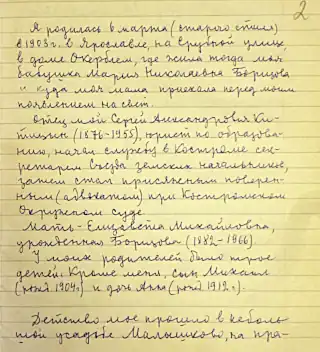 2
Я родилась 6 марта (старого стиля)
в 1903 г. в Ярославле, на улице,
в доме Окерблем, где жила тогда моя
бабушка Мария Николаевна Борщова
и куда моя мама приехала перед моим
появлением на свет.
Отец мой Сергей Александрович Ки-
(1876-1955), юрист по образова-
нию, начал службу в Костроме сек-
ретарем Съезда земских начальников,
затем стал присяжным поверен-
ным (адвокатом) при Костромском
Окружном суде.
Мать - Елизавета Михайловна,
урожденная Борщова (1882-1966).
У моих родителей было трое
детей. Кроме меня, сын Михаил
(рожд. 1904 г.) и дочь Анна (рожд. 1912 г.).
Детство мое прошло в неболь-
шой усадьбе Малышково, на пра-